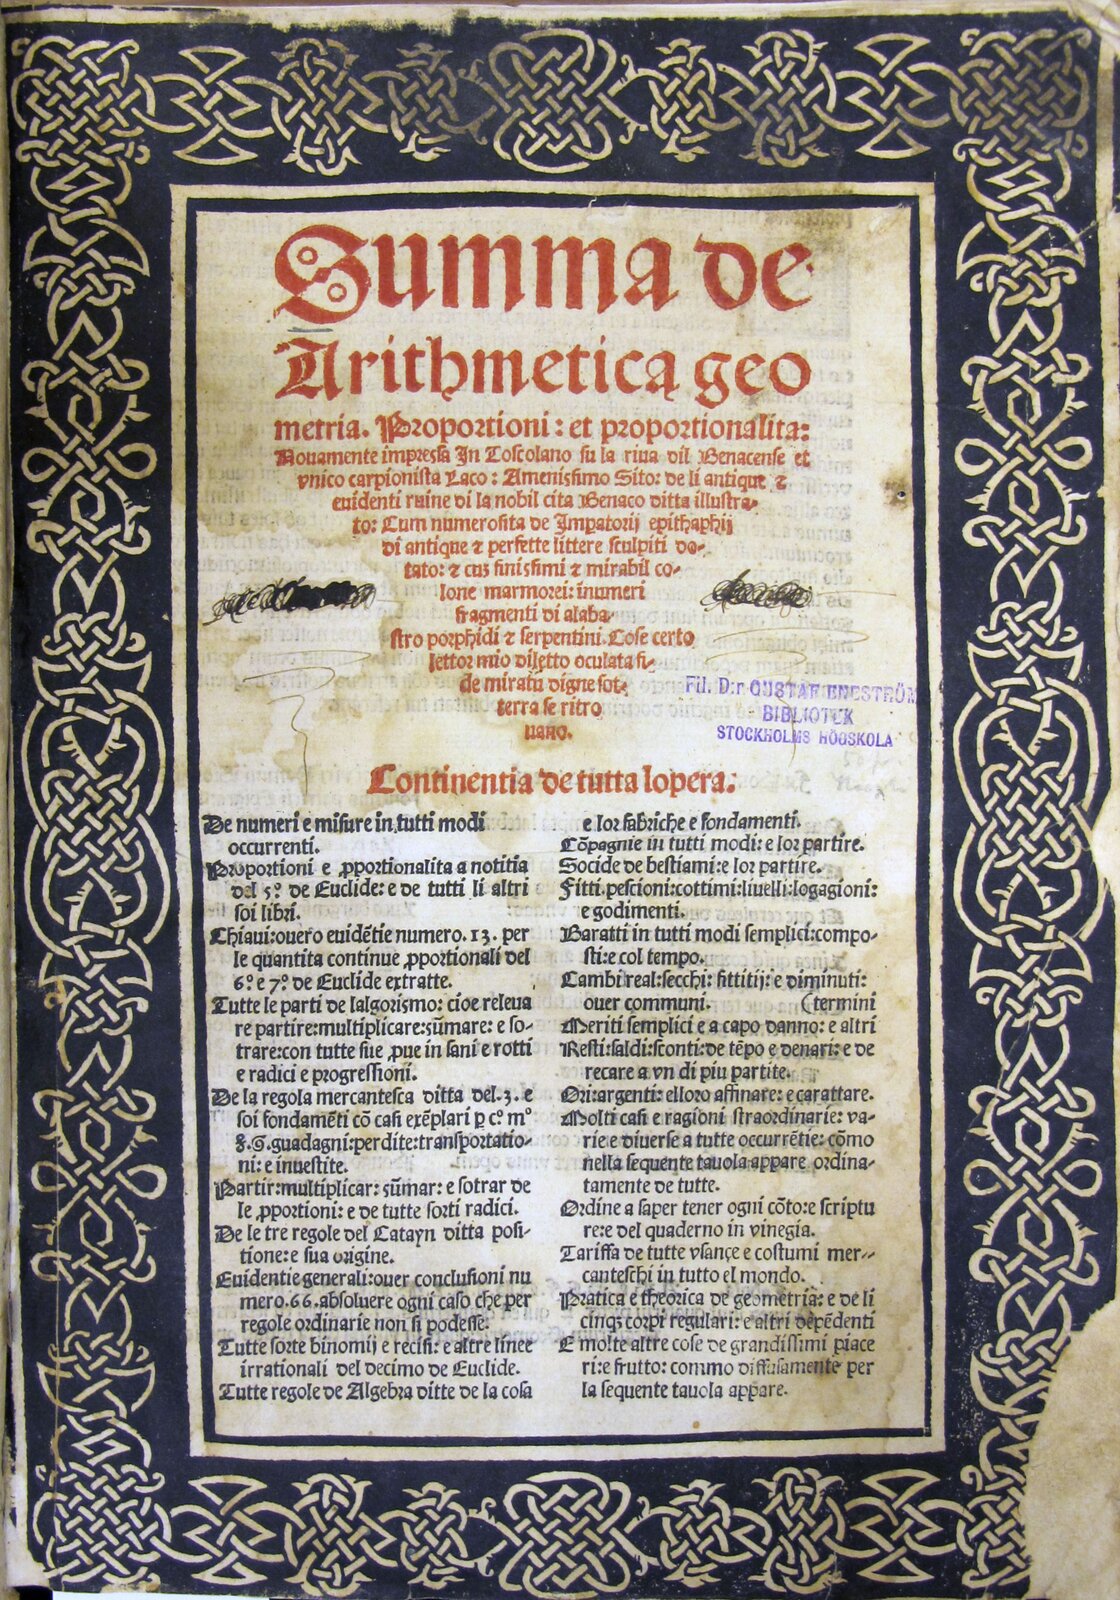 Summa de
Arithmetica geo
metria. Proportioni: et proportionalita:
Nouamente impressa In Toscolano su la riua dil Benacense et
vnico carpionista Laco: Amenissimo Sito: de li antique ⁊
euidenti ruine di la nobil cita Benaco ditta illustra-
to: Cum numerosita de Impatorij epithaphij
di antique ⁊ perfette littere sculpiti do-
tato: ⁊ cuʒ finissimi ⁊ mirabil co-
lone marmorei: inumeri
fragmenti di alaba-
stro porphidi ⁊ serpentini. Cose certo
lettor mio diletto oculata fi-
de miratu digne sot-
terra se ritro
uano.
Fil. D:r GUSTAF ENESTRÖM
BIBLIOTEK
STOCKHOLMS HÖGSKOLA
Continentia de tutta lopera:
De numeri e misure in tutti modi
occurrenti.
Proportioni e ꝓportionalita a notitia
del 5º. de Euclide: e de tutti li altri
soi libri.
Chiaui: ouero euidētie numero. 13. per
le quantita continue ꝓportionali del
6º. e 7º. de Euclide extratte.
Tutte le parti de lalgorismo: cioe releua
re partire: multiplicare: sūmare: e so-
trare: con tutte sue ꝓue in sani e rotti
e radici e progressioni.
De la regola mercantesca ditta del. 3. e
soi fondamēti cō casi exēplari ꝑ cº. mº
8. 9. guadagni: perdite: transportatio-
ni: e inuestite.
Partir: multiplicar: sūmar: e sotrar de
le ꝓportioni: e de tutte sorti radici.
De le tre regole del Catayn ditta posi-
tione: e sua origine.
Euidentie generali: ouer conclusioni nu
mero. 66. absoluere ogni caso che per
regole ordinarie non si podesse.
Tutte sorte binomij e recisi: e altre linee
irrationali del decimo de Euclide.
Tutte regole de Algebra ditte de la cosa
e lor fabriche e fondamenti.
Cōpagnie in tutti modi: e lor partire.
Socide de bestiami: e lor partire.
Fitti: pescioni: cottimi: liuelli: logagioni:
e godimenti.
Baratti in tutti modi semplici: compo-
sti: e col tempo.
Cambi real: secchi: fittitij: e diminuti:
ouer communi. (termini
Meriti semplici e a capo danno: e altri
Resti: saldi: sconti: de tēpo e denari: e de
recare a vn di piu partite.
Ori: argenti: e lloro affinare: e carattare.
Molti casi e ragioni straordinarie: va-
rie e diuerse a tutte occurrētie: cōmo
nella sequente tauola appare ordina-
tamente de tutte.
Ordine a saper tener ogni cōto: e scriptu
re: e del quaderno in vinegia.
Tariffa de tutte vsançe e costumi mer-
canteschi in tutto el mondo.
Pratica e theorica de geometria: e de li
cinqȝ corpi regulari: e altri dēpēdenti
E molte altre cose de grandissimi piace
ri: e frutto: commo diffusamente per
la sequente tauola appare.